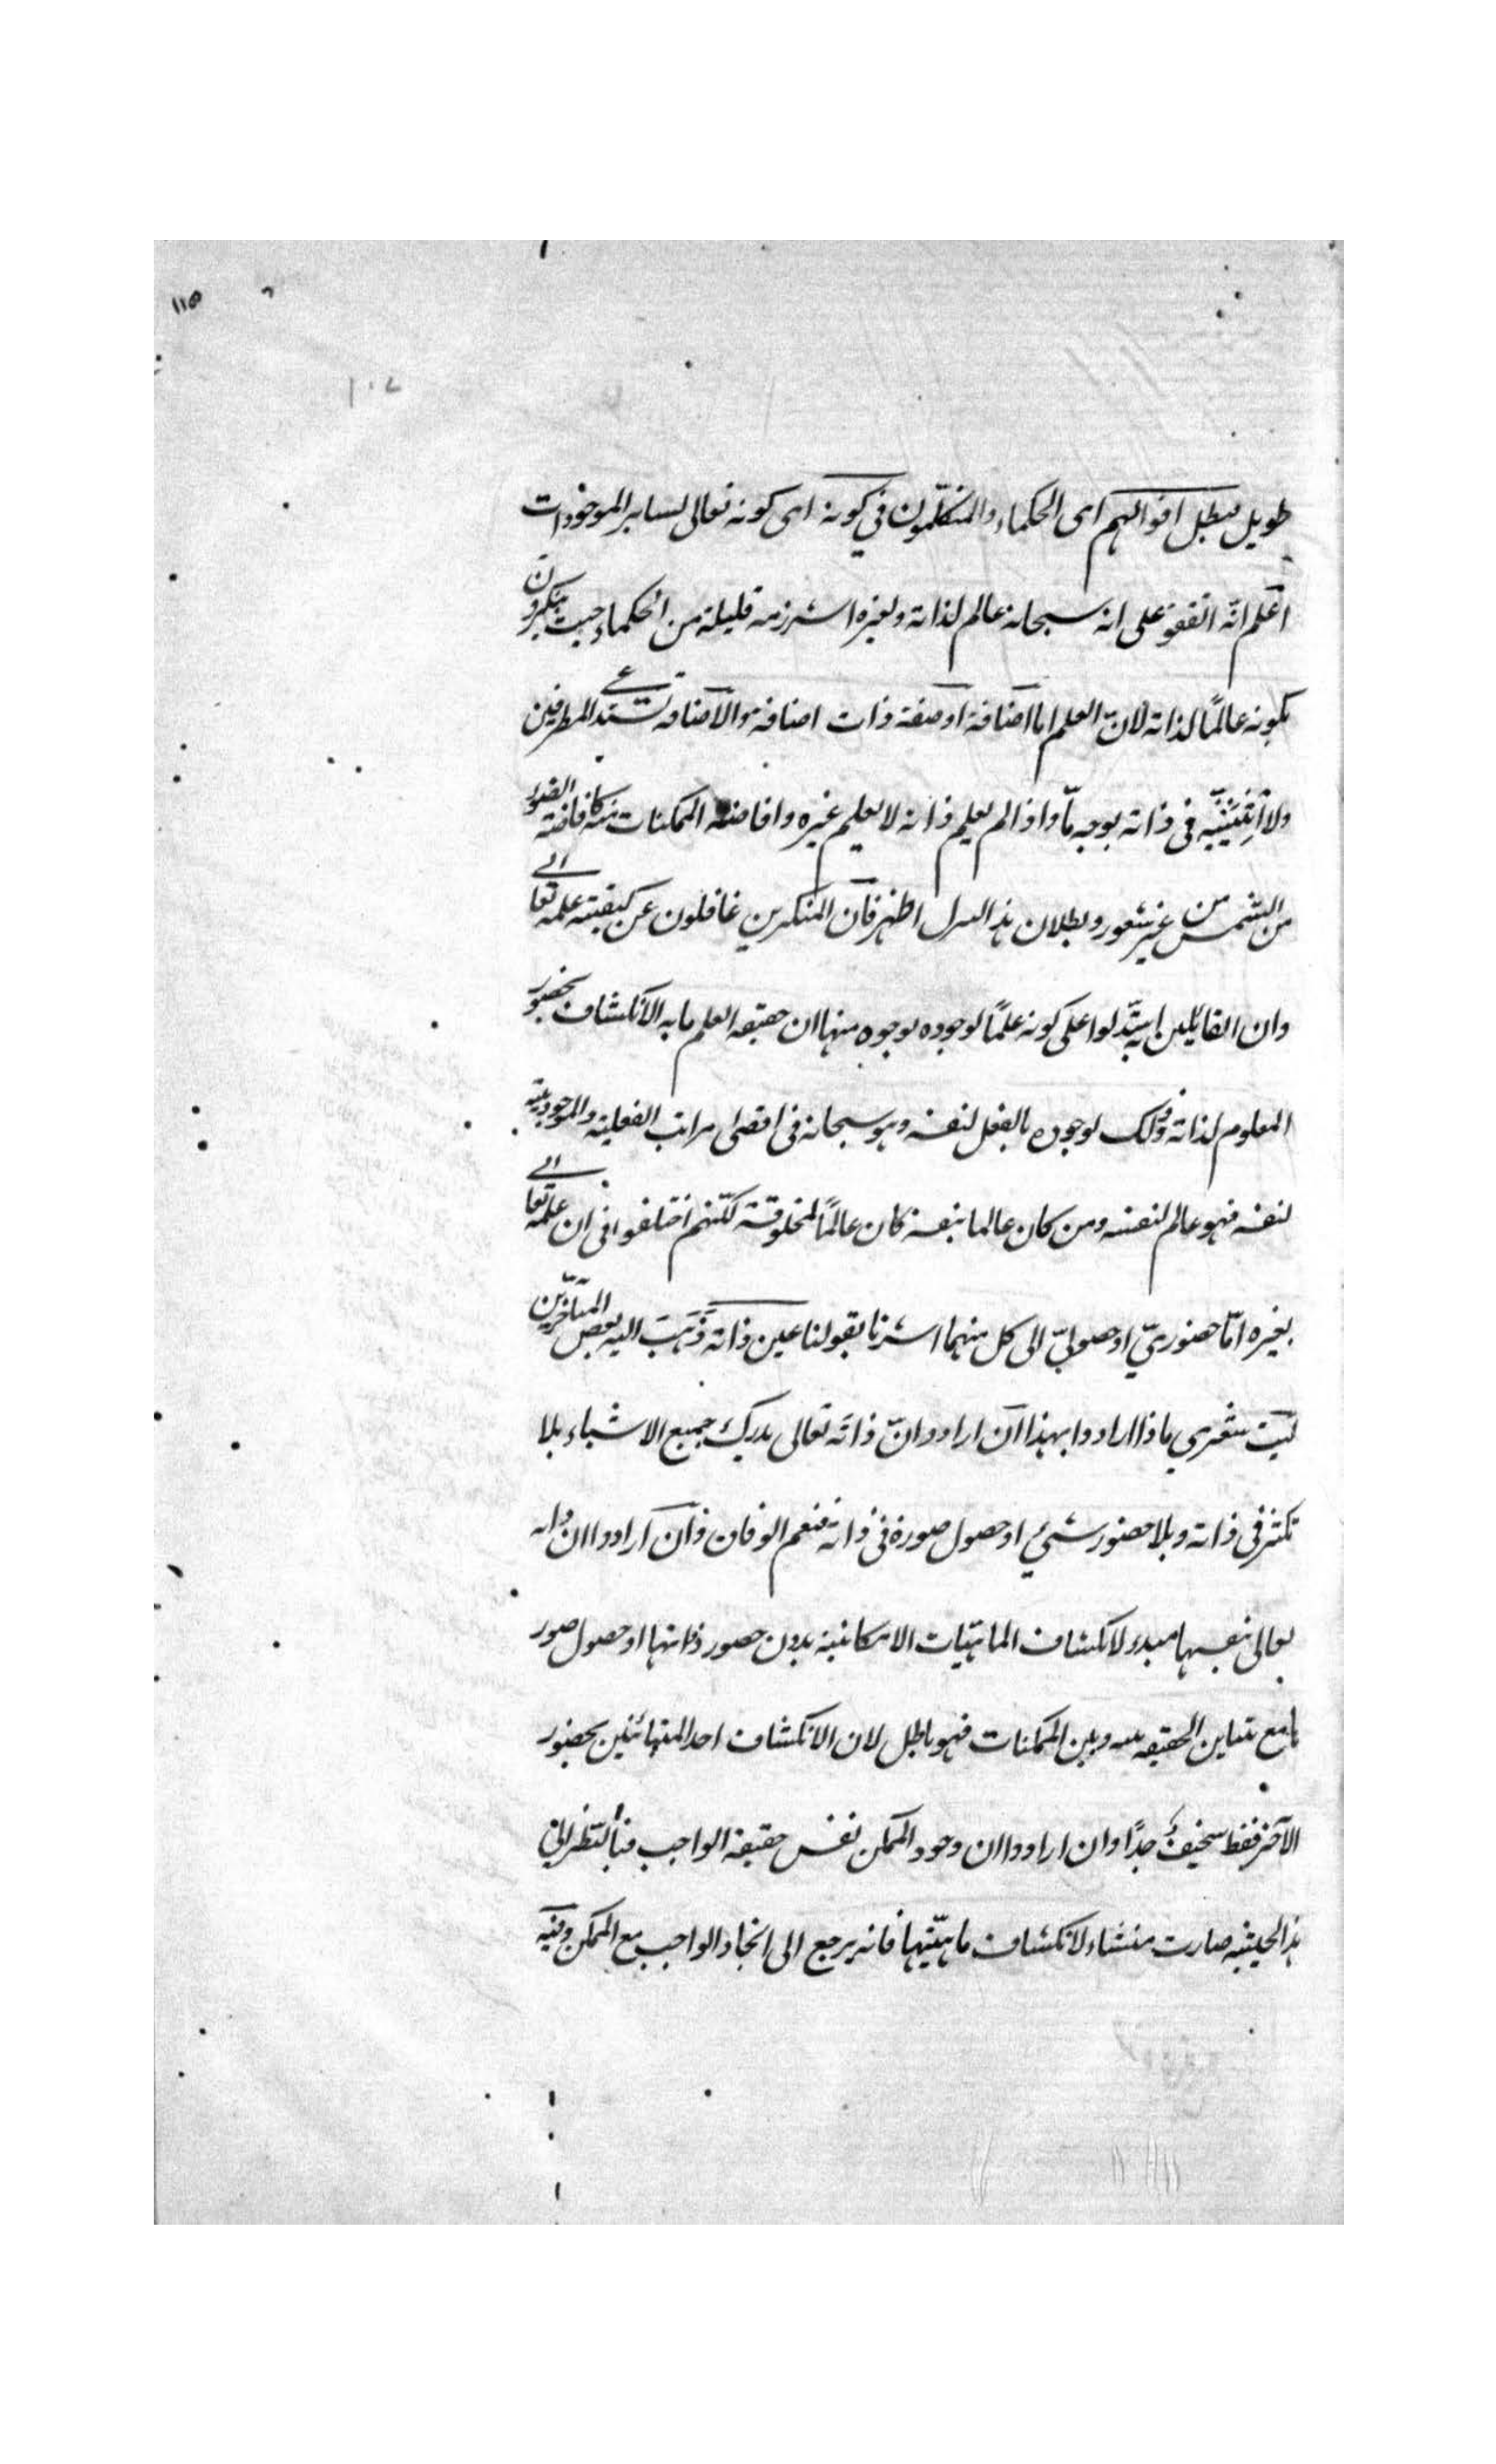 ١١٥
١٠٧
طويل يبطل اقوالهم اى الحكماء والمتكلمون في كونه اى كونه تعالى لساير الموجودات
اعلم انّه اتفقوا على انه سبحانه عالم لذاته ولغيره الا شرذمة قليلة من الحكماء حيث ينكرون
بكونه عالمًا لذاته لانّ العلم اما اضافة او صفة ذات اضافة والاضافة تستدعي الطرفين
ولا اثنينيّة فى ذاته بوجه مّا واذا لم يعلم ذاته لا يعلم غيره وافاضة الممكنات منه كافاضة الضوء
من الشمس من غير شعور وبطلان هذا اظهر فان المنكرين غافلون عن كيفية علمه تعالى
وان القائلين استدلوا على كونه علمًا لوجوده بوجوه منها ان حقيقه العلم ما به الانكشاف بحضور
المعلوم لذاته وذلك لوجوده بالفعل لنفسه وهو سبحانه فى اقصى مراتب الفعلية والموجودية
لنفسه فهو عالم لنفسه ومن كان عالما بنفسه كان عالمًا لمخلوقه لكنهم اختلفوا فى ان علمه تعالى
بغيره امّا حضوريّ او حصوليّ الى كل منهما اشرنا بقولنا عين ذاته ذَهَبَ اليه بعض المتأخرين
ليت شعري ماذا ارادوا بهذا ان ارادوا انّ ذاته تعالى يدرك جميع الاشياء بلا
تكثر فى ذاته وبلا حضور شيء او حصول صورة فى ذاته فنعم الوفاق وان ارادوا ان ذاته
تعالى بنفسها مبدء لانكشاف الماهيّات الامكانية بدون حضور ذواتها او حصول صور
ها مع تباين الحقيقه بينه وبين الممكنات فهو باطل لان الانكشاف احد المتبائنين بحضور
الآخر فقط سخيفٌ جدًا وان ارادوا ان وجود الممكن نفس حقيقة الواجب فبالنظر الى
هذا الحيثية صارت منشاء لانكشاف ماهيّتها فانه يرجع الى اتحاد الواجب مع الممكن وفيه